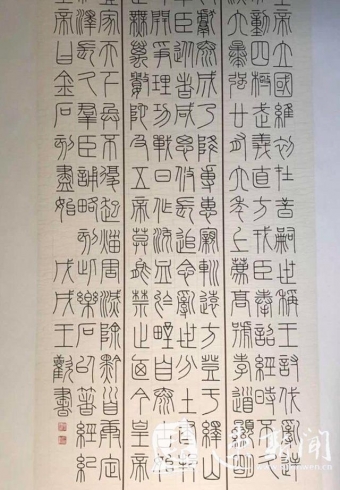 帝立國維初在昔嗣世稱王討伐亂逆
動四極武義直方戎臣奉詔經時不久
六暴強廿有六年上薦高號孝道顯明
獻泰成乃降專惠親巡遠方登于繹山
臣從者咸思攸長追念亂世分土建
開爭理功戰日作流血於野自泰古
無萬數陀及五帝莫能禁止廼今皇帝
家天下兵不復起災害滅除黔首康定
澤長久羣臣誦略刻此樂石以著經紀
皇帝曰金石刻盡始 戊戌王書
新闻